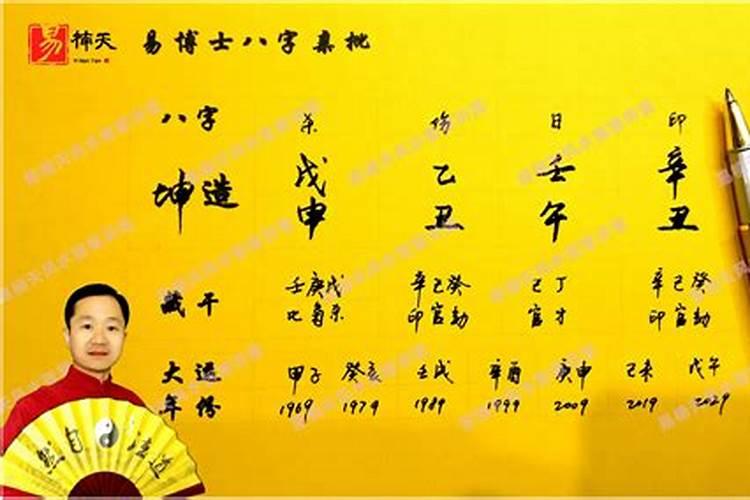 易 楠天 易博士八字真批
八字 杀 伤 日 印
坤造 戊 乙 壬 辛
申 丑 午 丑
藏干 壬庚戊 辛己癸 己丁 辛己癸
比枭杀 印官劫 官才 印官劫
大运 甲子 癸亥 壬戌 辛酉 庚申 己未 戊午
年份 1969 1979 1989 1999 2009 2019 2029
然自法道